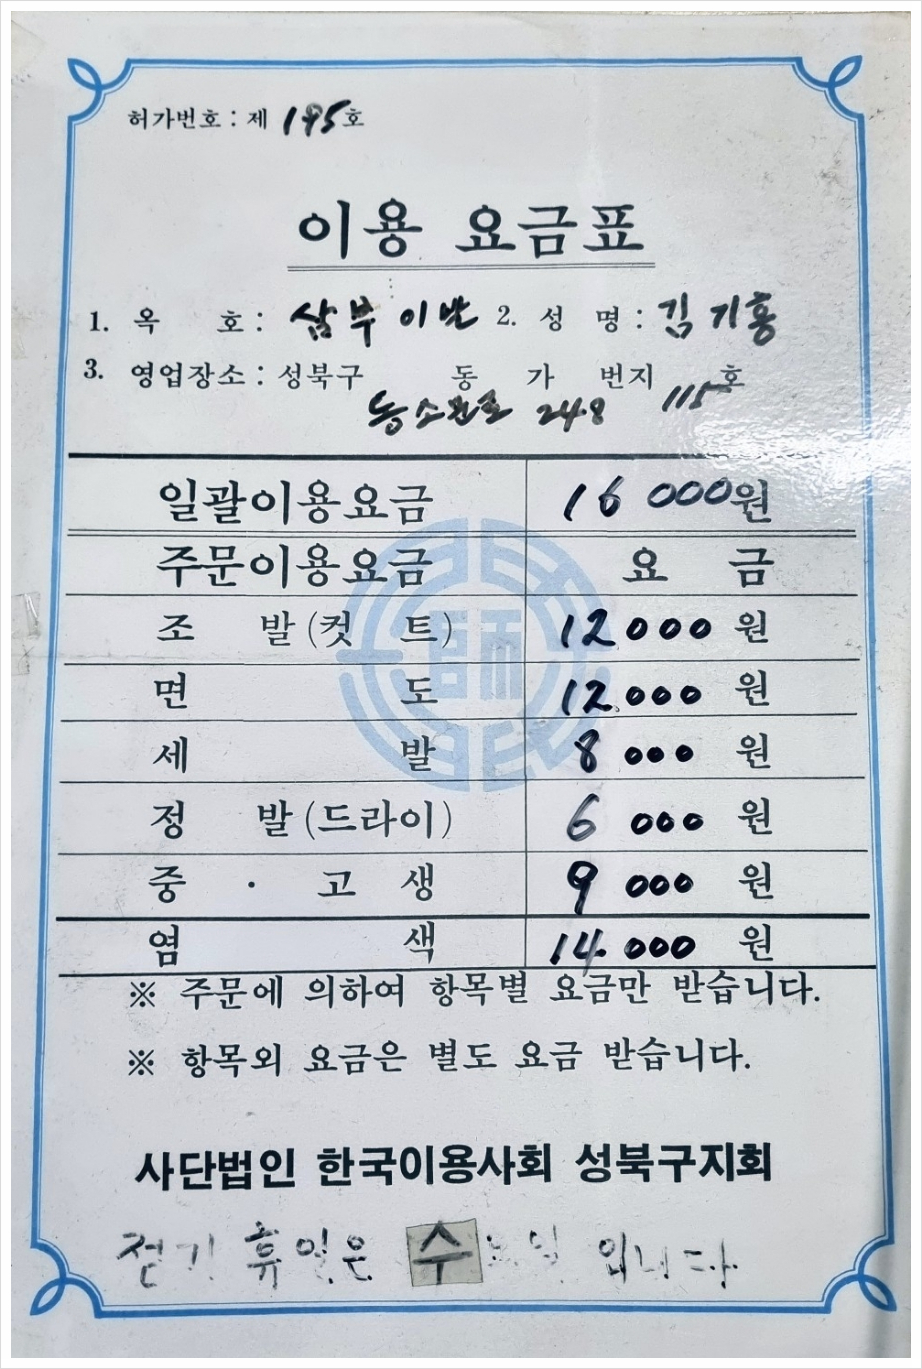 허가번호 : 제 195호
이용 요금표
1. 옥 호 : 삼부이발 2. 성 명 : 김기홍
3. 영업장소 : 성북구 동 가 번지 호
248 115
일괄이용요금 16 000원
주문이용요금 요 금
조 발 (컷 트) 12000 원
면 도 12.000 원
세 발 8 000 원
정 발 (드라이) 6 000 원
중 · 고 생 9 000 원
염 색 14.000 원
※ 주문에 의하여 항목별 요금만 받습니다.
※ 항목외 요금은 별도 요금 받습니다.
사단법인 한국이용사회 성북구지회
정기 휴일은 수요일 입니다.